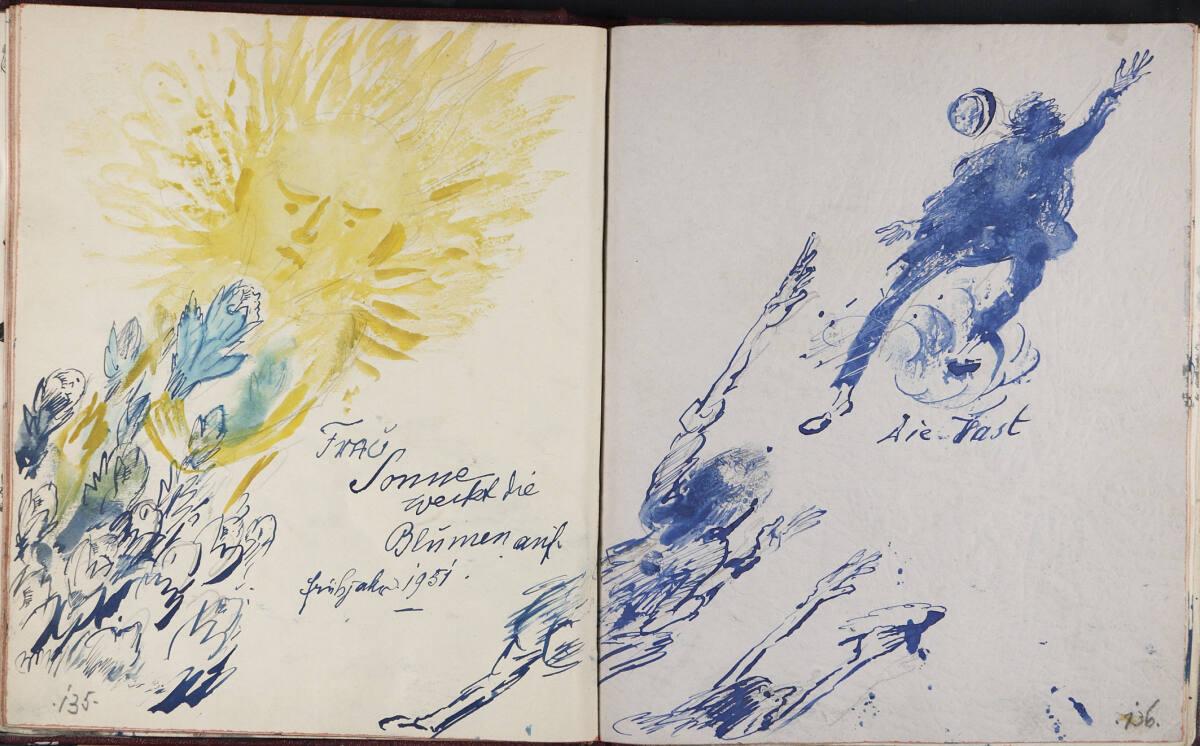 Frau
Sonne
weckt die
Blumen auf.
Frühjahr 1951.
135.
Die Hast
136.